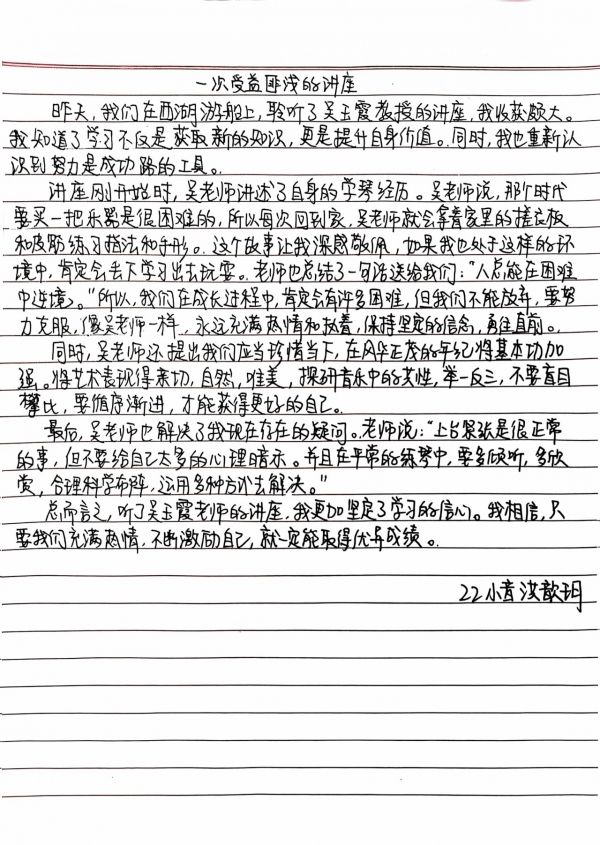 一次受益匪浅的讲座
昨天，我们在西湖游船上，聆听了吴玉霞教授的讲座，我收获颇大。
我知道了学习不仅是获取新的知识，更是提升自身价值。同时，我也重新认
识到努力是成功路的工具。
讲座刚开始时，吴老师讲述了自身的学琴经历。吴老师说，那个时代
要买一把乐器是很困难的，所以每次回到家，吴老师就会拿着家里的搓衣板
和皮筋练习指法和手形。这个故事让我深感敬佩，如果我也处于这样的环
境中，肯定会丢下学习出去玩耍。老师也总结了一句话送给我们：“人总能在困难
中逆境。”所以，我们在成长过程中，肯定会有许多困难，但我们不能放弃，要努
力克服，像吴老师一样，永远充满热情和执着，保持坚定的信念，勇往直前。
同时，吴老师还提出我们应当珍惜当下，在风华正茂的年纪将基本功加
强。将艺术表现得亲切，自然，唯美，探研音乐中的共性，举一反三，不要盲目
攀比，要循序渐进，才能获得更好的自己。
最后，吴老师也解决了我现在存在的疑问。老师说：“上台紧张是很正常
的事，但不要给自己太多的心理暗示。并且在平常的练琴中，要多倾听，多欣
赏，合理科学布阵，运用多种方式去解决。”
总而言之，听了吴玉霞老师的讲座，我更加坚定了学习的信心。我相信，只
要我们充满热情，不断激励自己，就一定能取得优异成绩。
22小音 汝歆玥